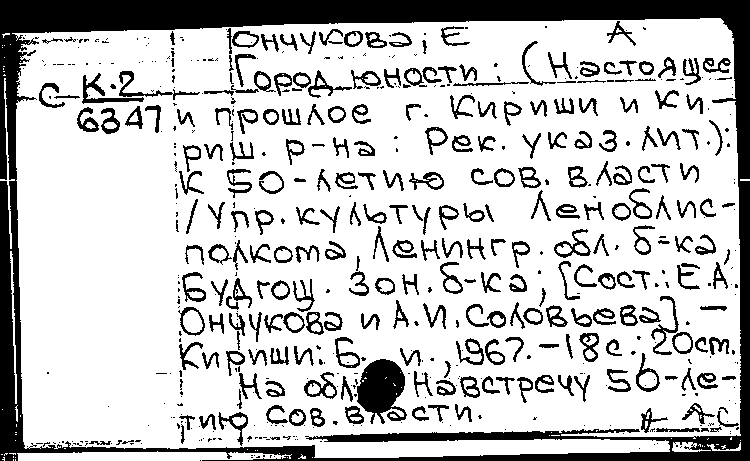 Ончукова, Е А.
Город юности: (Настоящее
С К-2
6347
и прошлое г. Кириши и Ки-
риш. р-на: Рек. указ. лит.):
К 50-летию сов. власти
/Упр. культуры Леноблис-
полкома, Ленингр. обл. б-ка,
Будгощ. зон. б-ка; [Сост.: Е.А.
Ончукова и А.И. Соловьева]. —
Кириши: Б. и., 1967. - 18с.; 20см.
На обл Навстречу 50-ле-
тию сов. власти.